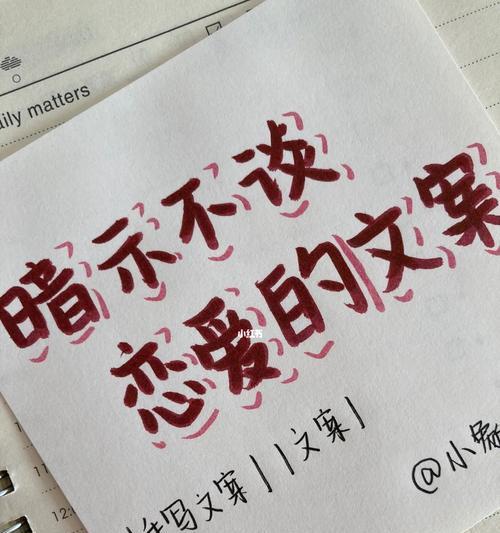 daily matters
暗示不谈
恋爱的文案
小红书
写文案||文案|
@小
11
12: